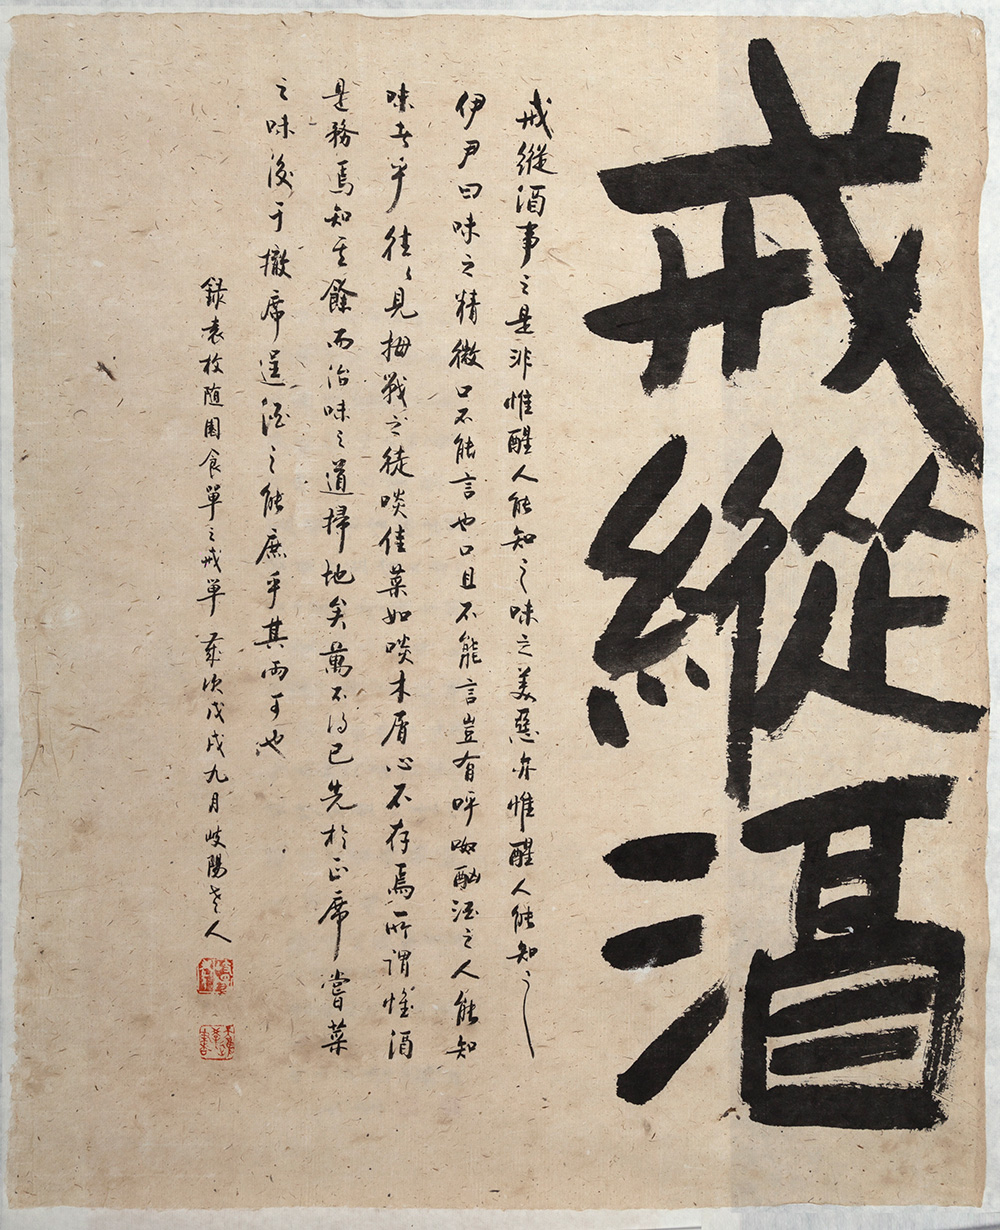 戒縱酒
戒縱酒事之是非惟醒人能知之味之美惡亦惟醒人能知之
伊尹曰味之精微口不能言也口且不能言豈有呼呶酗酒之人能知
味者乎往々見拇戰之徒啖佳菜如啖木屑心不存焉所謂惟酒
是務焉知其餘而治味之道掃地矣萬不得已先於正席嘗菜
之味後于撤席逞酒之能庶乎其兩可也
録袁枚随園食單之戒單 歲次戊戌九月岐陽老人